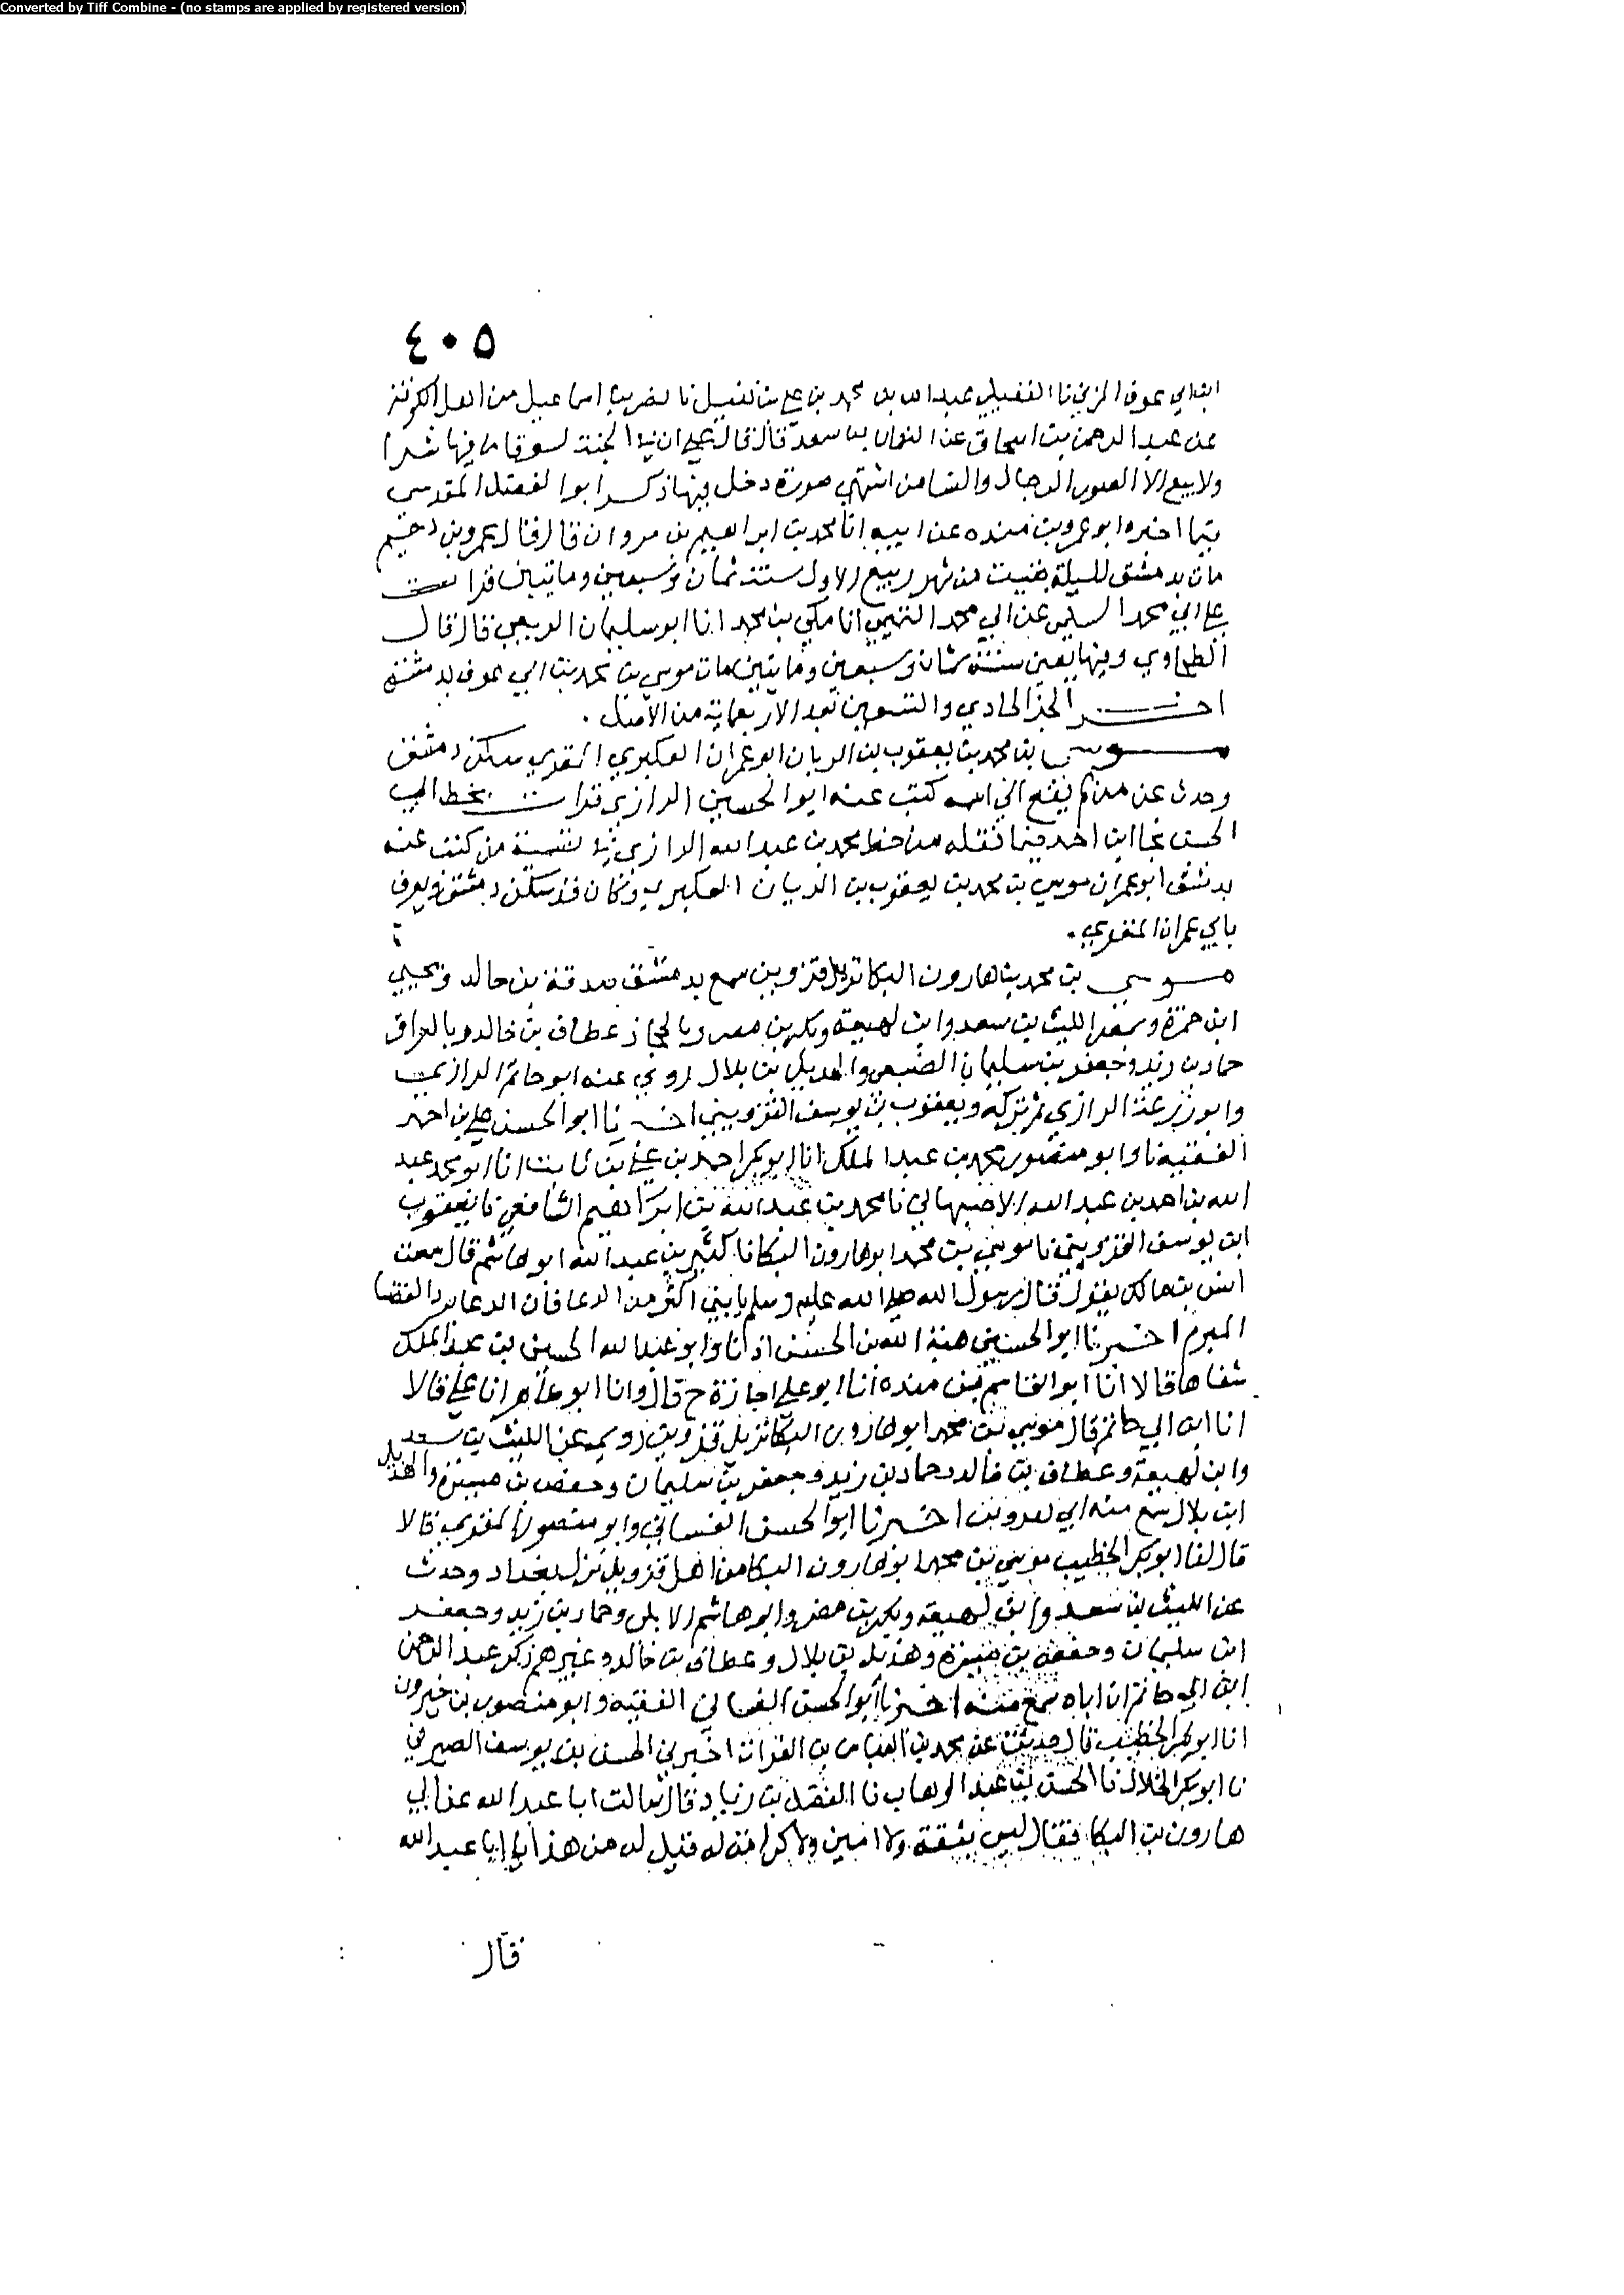 Converted by Tiff Combine - (no stamps are applied by registered version)
٤٠٥
ابن ابي عوف المزني نا النفيلي عبد الله بن محمد بن علي بن نفيل نا نضر بن اسماعيل من اهل الكوفة
عن عبد الرحمن بن اسحاق عن النعمان بن سعد قال قال علي ان في الجنة لسوقا ما فيها شرا
ولا بيع الا الصور الرجال والنسا من اشتهى صورة دخل فيها ذكر ابو الفضل المقدسي
فيما اخبره ابو عمرو بن منده عن ابيه انا محمد بن ابراهيم بن مروان قال قال عمرو بن دحيم
مات بدمشق لليلة بقيت من شهر ربيع الاول سنة ثمان وسبعين وماتين قرات
على ابي محمد السلمي عن ابي محمد التميمي انا مكي بن محمد انا ابو سليمان الربعي قال قال
الطحاوي وفيها يعين سنة ثمان وسبعين وماتين مات موسى بن محمد بن ابي عوف بدمشق
اخر الجز الحادي والتسعين بعد الاربعماية من الاصل .
موسى بن محمد بن يعقوب بن الريان ابو عمران العكبري المقري سكن دمشق
وحدث عن من لم يقع الي اسمه كتب عنه ابو الحسين الرازي قرات بخط ابي
الحسن نجا ابن احمد فيما نقله من خط محمد بن عبد الله الرازي في تسمية من كتب عنه
بدمشق ابو عمران موسى بن محمد بن يعقوب بن الريان العكبري وكان قد سكن دمشق ويعرف
بابي عمران المقري .
موسى بن محمد بن هارون البكا نزيل قزوين سمع بدمشق صدقة بن خالد ويحيى
ابن حمزة وبمصر الليث بن سعد وابن لهيعة وبكر بن مضر وبالحجاز عطاف بن خالد وبالعراق
حماد بن زيد وجعفر بن سليمان الضبعي والهذيل بن بلال روى عنه ابو حاتم الرازي
وابو زرعة الرازي ثم تركه ويعقوب بن يوسف القزويني اخبرنا ابو الحسن علي بن احمد
الفقيه نا وابو منصور محمد بن عبد الملك انا ابو بكر احمد بن علي بن ثابت انا ابو محمد عبد
الله بن احمد بن عبد الله الاصبهاني نا محمد بن عبد الله بن ابراهيم الشافعي نا يعقوب
ابن يوسف القزويني نا موسى بن محمد ابو هارون البكا نا كثير بن عبد الله ابو هاشم قال سمعت
انس بن مالك يقول قال رسول الله صلى الله عليه وسلم يا بني اكثر من الدعا فان الدعا يرد القضا
المبرم اخبرنا ابو الحسين هبة الله بن الحسن اذنا وابو عبد الله الحسين بن عبد الملك
شفاها قالا انا ابو القاسم بن منده انا ابو علي اجازة ح قال وانا ابو طاهر انا علي قالا
انا ابن ابي حاتم قال موسى بن محمد ابو هارون البكا نزيل قزوين روى عن الليث بن سعد
وابن لهيعة وعطاف بن خالد وحماد بن زيد وجعفر بن سليمان وحفص بن ميسرة والهذيل
ابن بلال سمع منه ابي بقزوين اخبرنا ابو الحسن الغساني وابو منصور المقري قالا
قال لنا ابو بكر الخطيب موسى بن محمد ابو هارون البكا من اهل قزوين نزل بغداد وحدث
عن الليث بن سعد وابن لهيعة وبكر بن مضر وابو هاشم الابلي وحماد بن زيد وجعفر
ابن سليمان وحفص بن ميسرة وهذيل بن بلال وعطاف بن خالد وغيرهم ذكر عبد الرحمن
ابن ابي حاتم ان اباه سمع منه اخبرنا ابو الحسن الغساني الفقيه وابو منصور بن خيرون
انا ابو بكر الخطيب قال حدثت عن محمد بن العباس بن الفرات اخبرني الحسن بن يوسف الصيرفي
نا ابو بكر الخلال نا الحسن بن عبد الوهاب نا الفضل بن زياد قال سالت ابا عبد الله عن ابي
هارون بن البكا فقال ليس بثقة ولا امين ولا كرامة له قيل له من هذا يا ابا عبد الله
قال